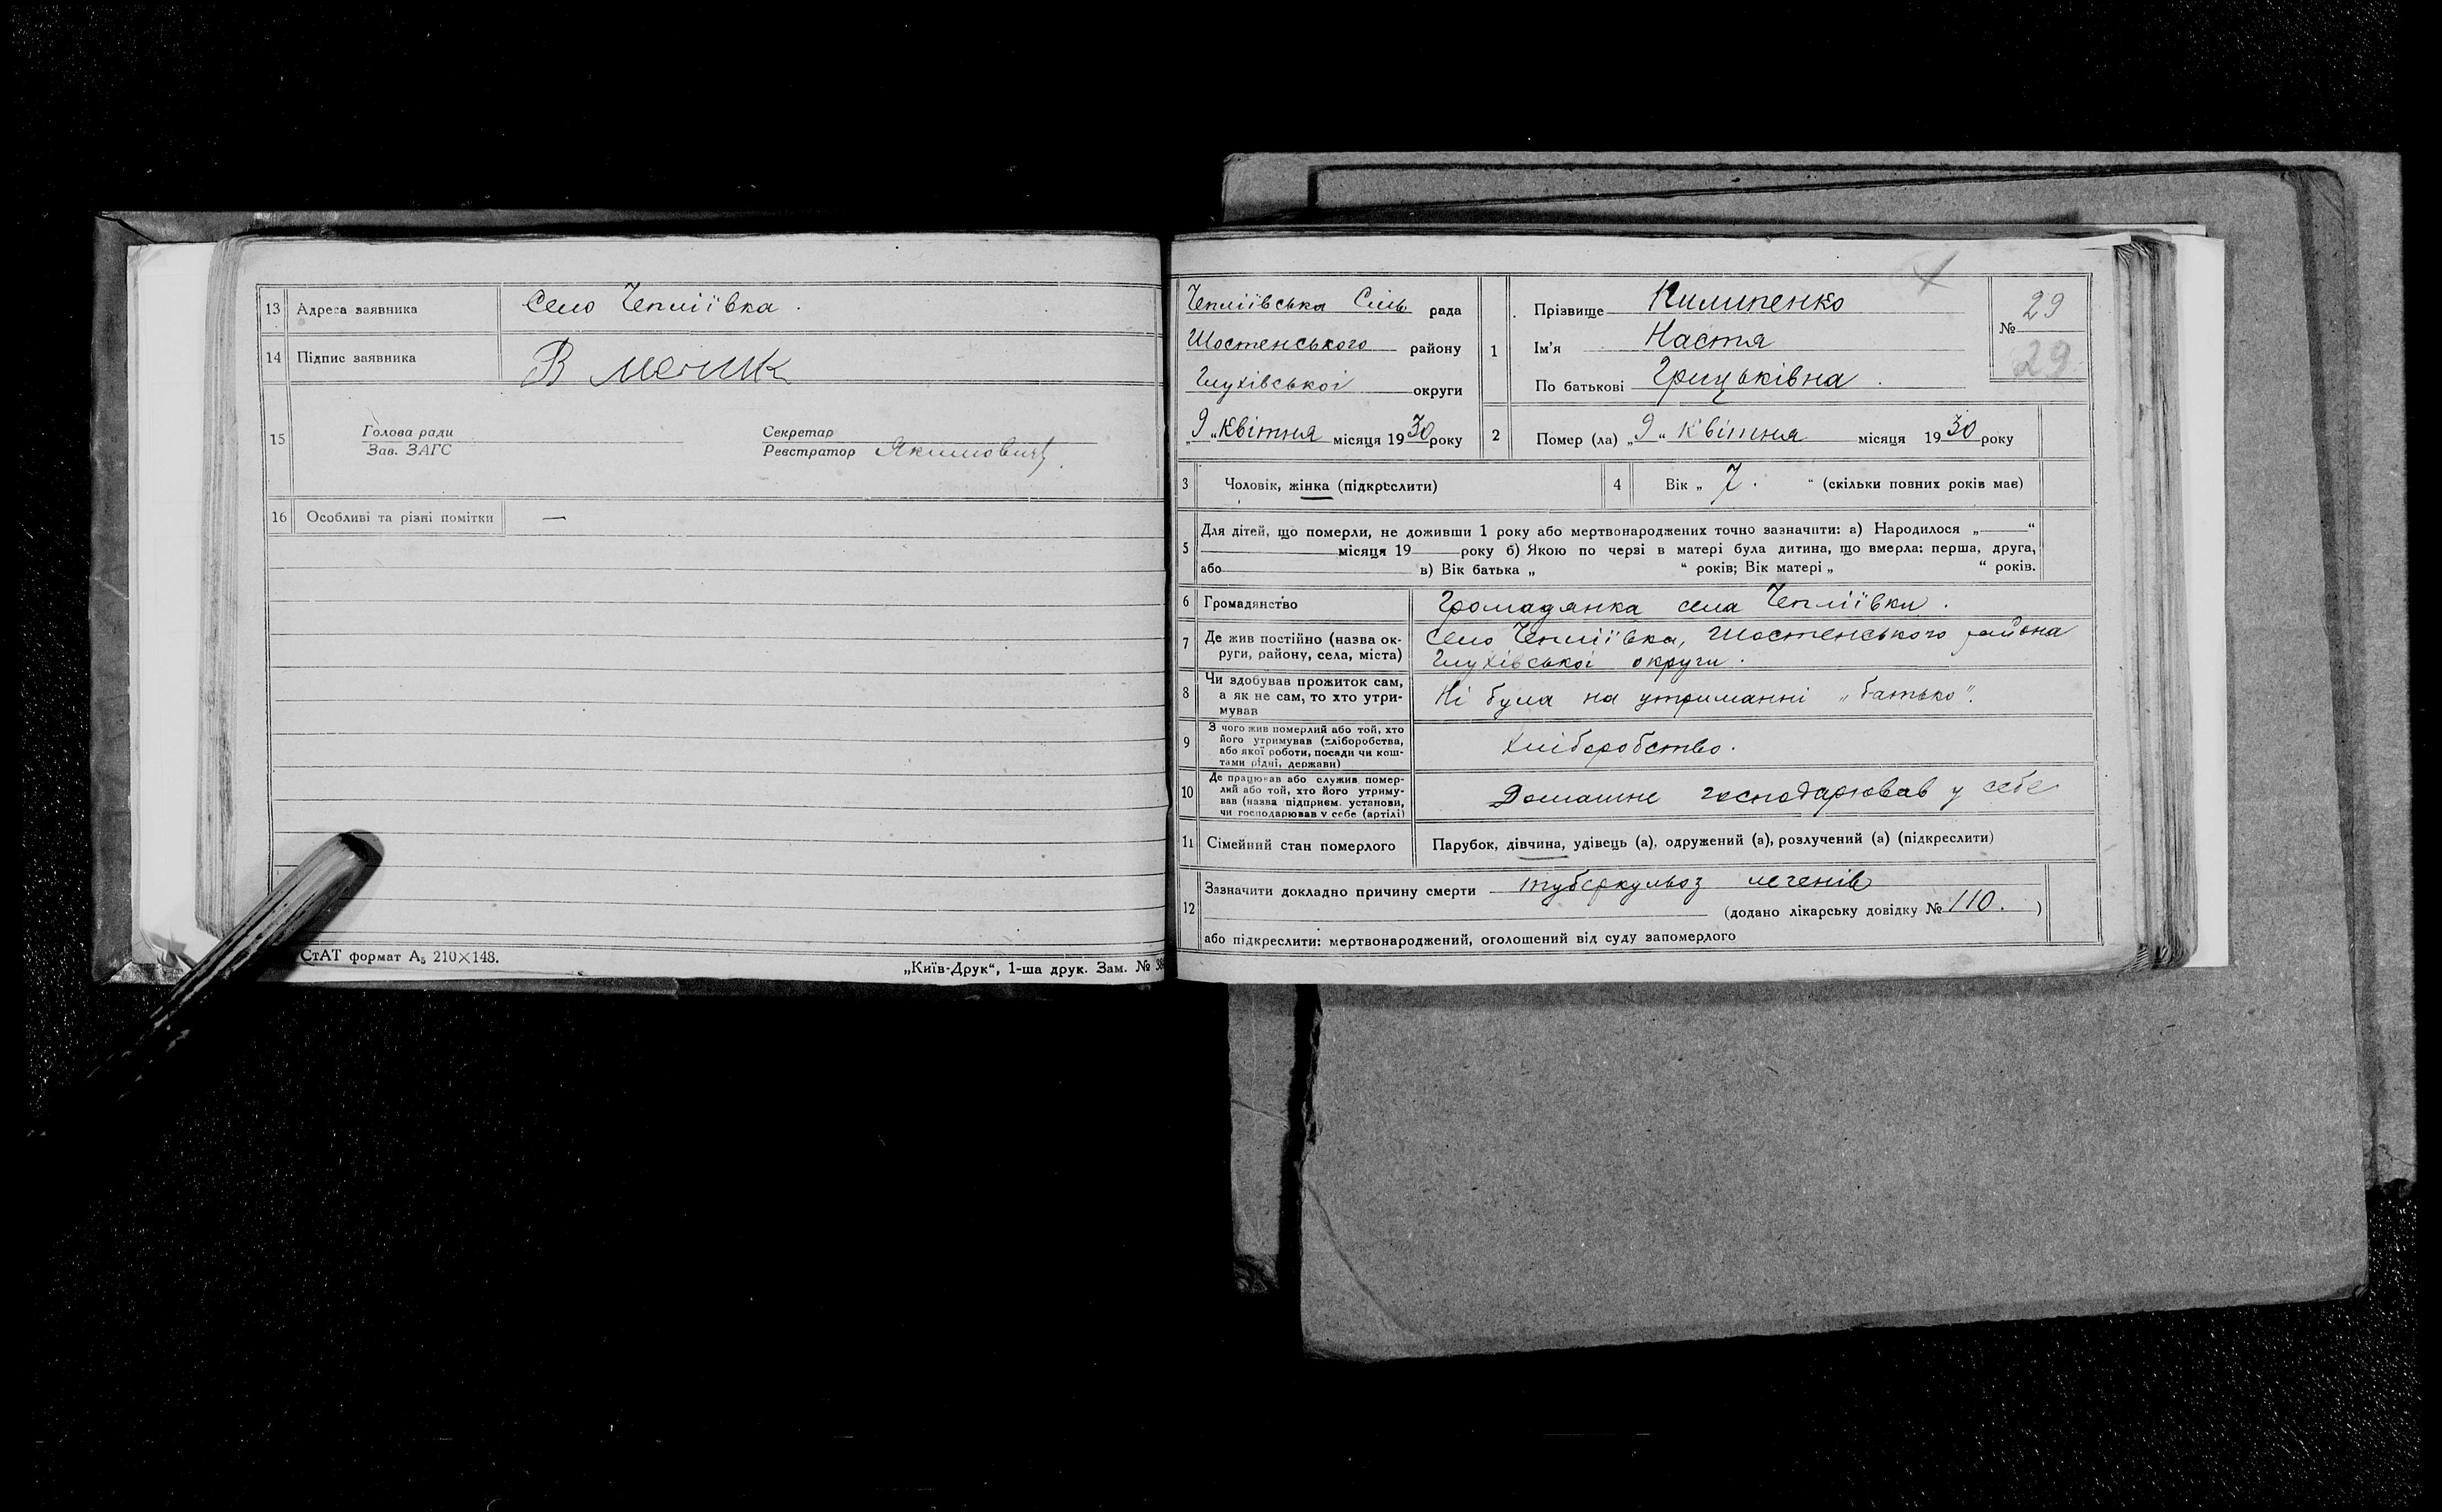 13 Адреса заявника Село Чепліївка.
14 Підпис заявника В Мелик
15 Голова ради
Зав. ЗАГС
Секретар
Реєстратор Якимович
16 Особливі та різні помітки —
СтАТ формат А₅ 210×148.
„Київ-Друк“, 1-ша друк. Зам. № 38
Чепліївська Сіль рада
Шостенського району
Глухівської округи
„9„ Квітня місяця 1930 року
1 Прізвище Пилипенко
Ім'я Настя
По батькові Грицьківна.
№ 29
29
2 Помер (ла) „9“ Квітня місяця 1930 року
3 Чоловік, жінка (підкреслити)
4 Вік „ 7. “ (скільки повних років має)
5 Для дітей, що померли, не доживши 1 року або мертвонароджених точно зазначити: а) Народилося „ “
місяця 19 року б) Якою по черзі в матері була дитина, що вмерла: перша, друга,
або в) Вік батька „ “ років; Вік матері „ “ років.
6 Громадянство Громадянка села Чепліївки.
7 Де жив постійно (назва ок-
руги, району, села, міста)
Село Чепліївка, Шостенського района
Глухівської округи.
8 Чи здобував прожиток сам,
а як не сам, то хто утри-
мував
Ні була на утриманні „батько“.
9 З чого жив померлий або той, хто
його утримував (хліборобства,
або якої роботи, посади чи кош-
тами рідні, держави)
Хліборобство.
10 Де працював або служив помер-
лий або той, хто його утриму-
вав (назва підприєм. установи,
чи господарював у себе (артілі)
Домашнє господарював у себе
11 Сімейний стан померлого Парубок, дівчина, удівець (а), одружений (а), розлучений (а) (підкреслити)
12 Зазначити докладно причину смерти туберкульоз легенів
(додано лікарську довідку № 110. )
або підкреслити: мертвонароджений, оголошений від суду запомерлого